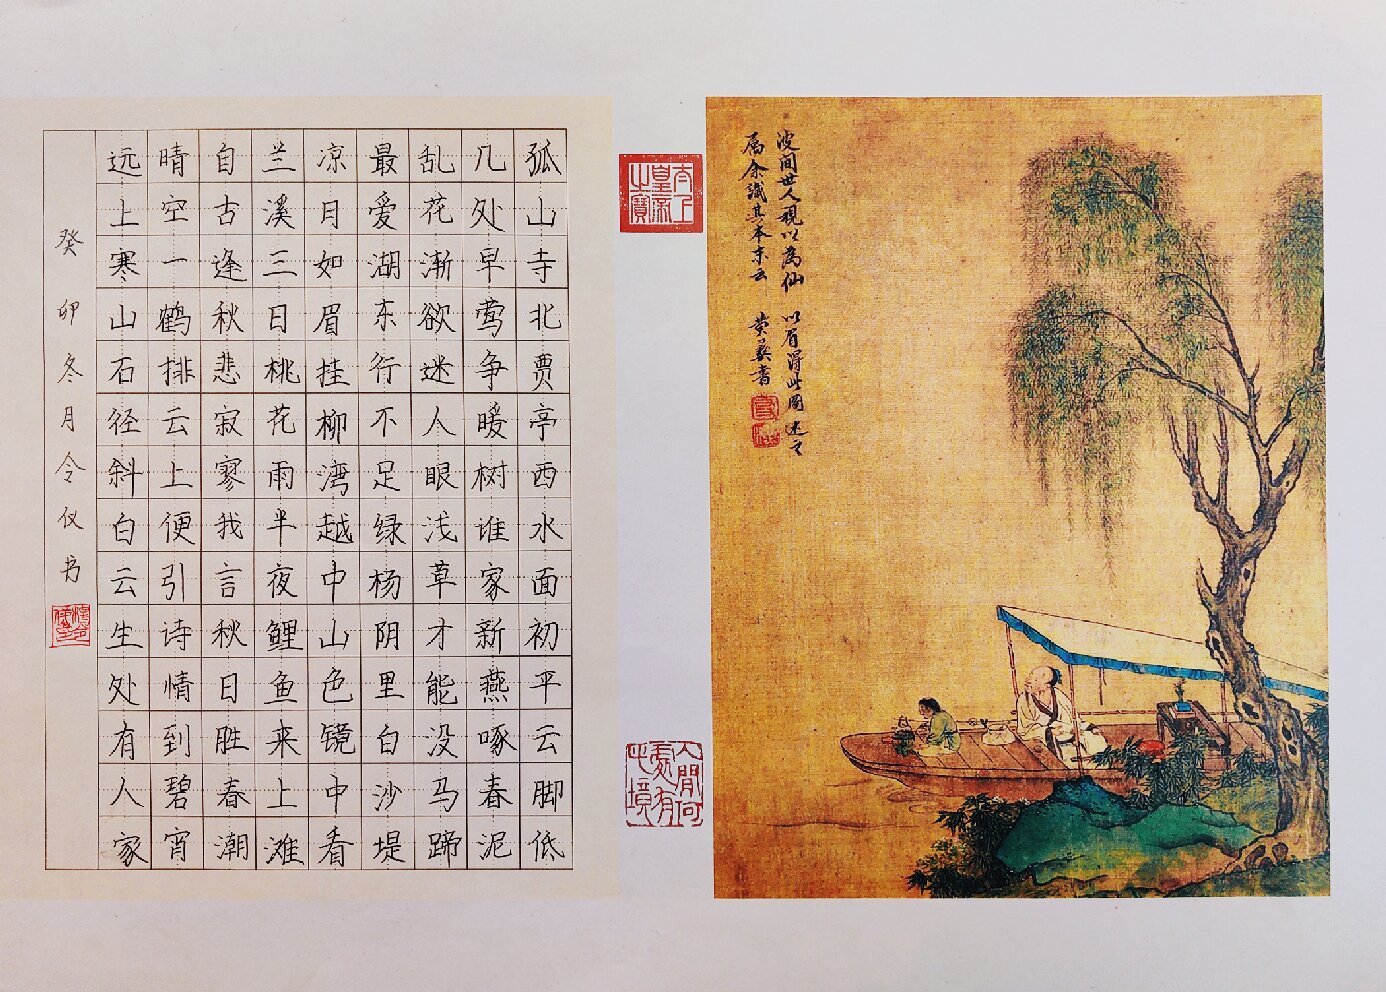 孤山寺北贾亭西水面初平云脚低
几处早莺争暖树谁家新燕啄春泥
乱花渐欲迷人眼浅草才能没马蹄
最爱湖东行不足绿杨阴里白沙堤
凉月如眉挂柳湾越中山色镜中看
兰溪三日桃花雨半夜鲤鱼来上滩
自古逢秋悲寂寥我言秋日胜春潮
晴空一鹤排云上便引诗情到碧宵
远上寒山石径斜白云生处有人家
癸卯冬月令仪书
太上皇帝之寶
人間何處有此境
波間世人視以為仙 以眉得此圖
属余識其本末云 黄彝書